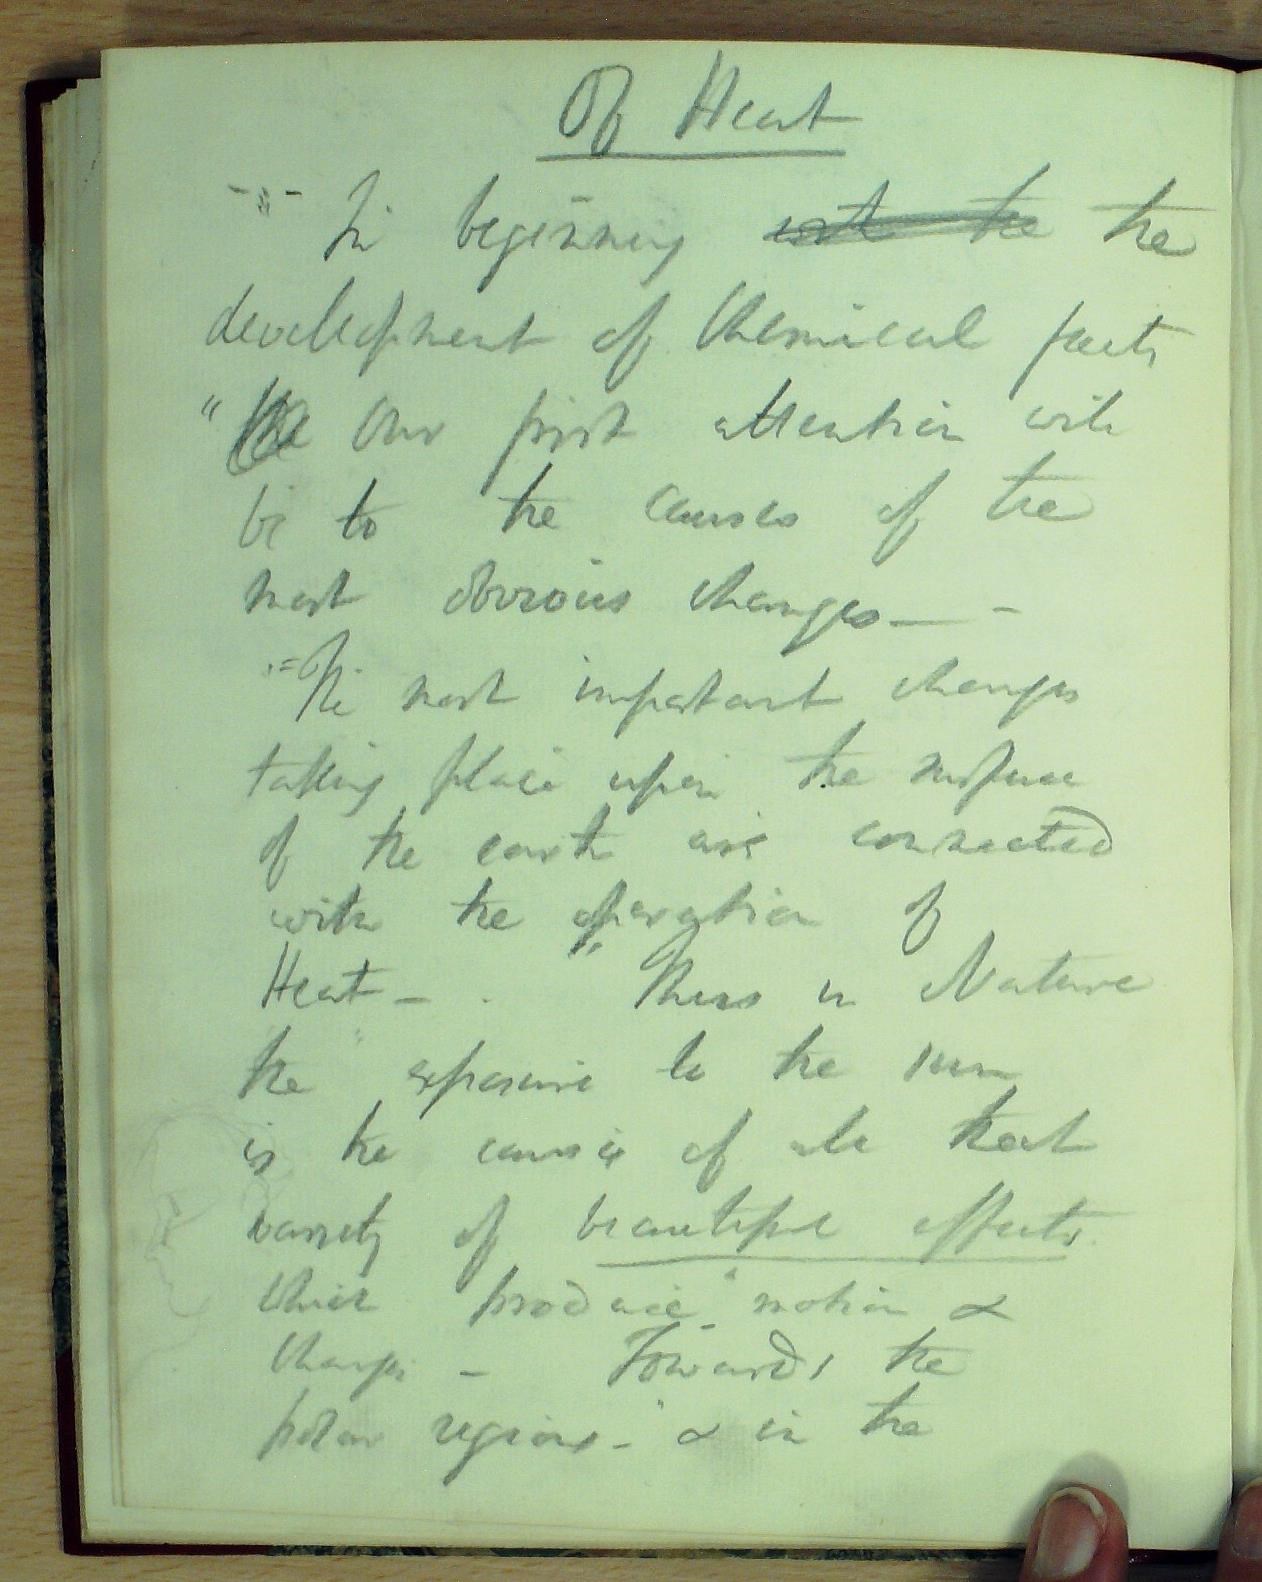 Of Heat
-"- In beginning with the the
development of Chemical facts
" Our first attention will
be to the causes of the
most obvious changes — -
"= The most important changes
taking place upon the surface
of the earth are connected
with the operation of
Heat - . " Thus in Nature
the " exposure to the sun
is the cause of all that
variety of beautiful effects
which produce " motion &
change - Towards the
polar regions - " & in the